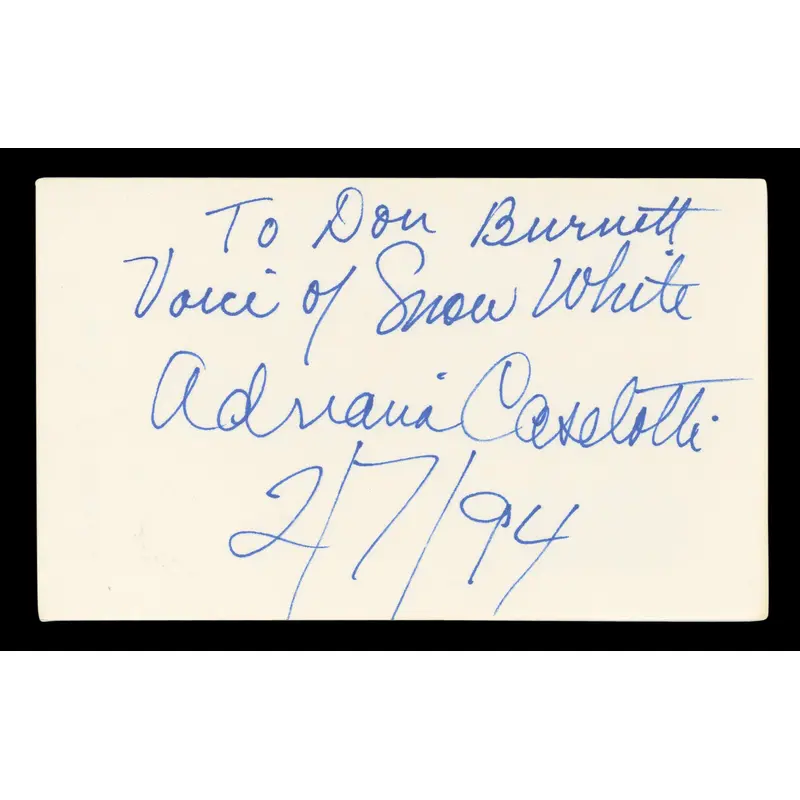 To Don Burnett
Voice of Snow White
Adriana Caselotti
2/7/94